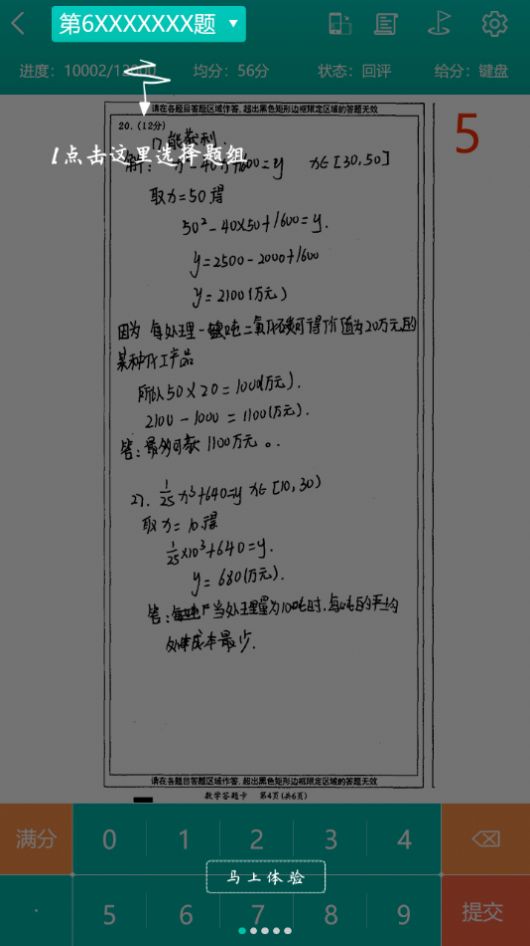 第6XXXXXXX题
进度：10002/12000 均分：56分 状态：回评 给分：键盘
请在各题目答题区域作答，超出黑色矩形边框限定区域的答题无效
5
20.（12分）
1点击这里选择题组
解： -40x+1600=y x∈[30,50]
取x=50得
50²-40×50+1600=y.
y=2500-2000+1600
y=2100(万元)
因为 每处理一吨二氧化碳可得价值为20万元的
某种化工产品
所以50×20=1000(万元).
2100-1000=1100(万元).
答：最多可获1100万元。
27. 1/25 x³+640=y x∈[10,30)
取x=10得
1/25×10³+640=y.
y=680(万元).
答： 当处理量为10吨时,每吨的平均
处理成本最少.
请在各题目答题区域作答，超出黑色矩形边框限定区域的答题无效
数学答题卡 第4页(共6页)
满分 0 1 2 3 4
马上体验
. 5 6 7 8 9 提交